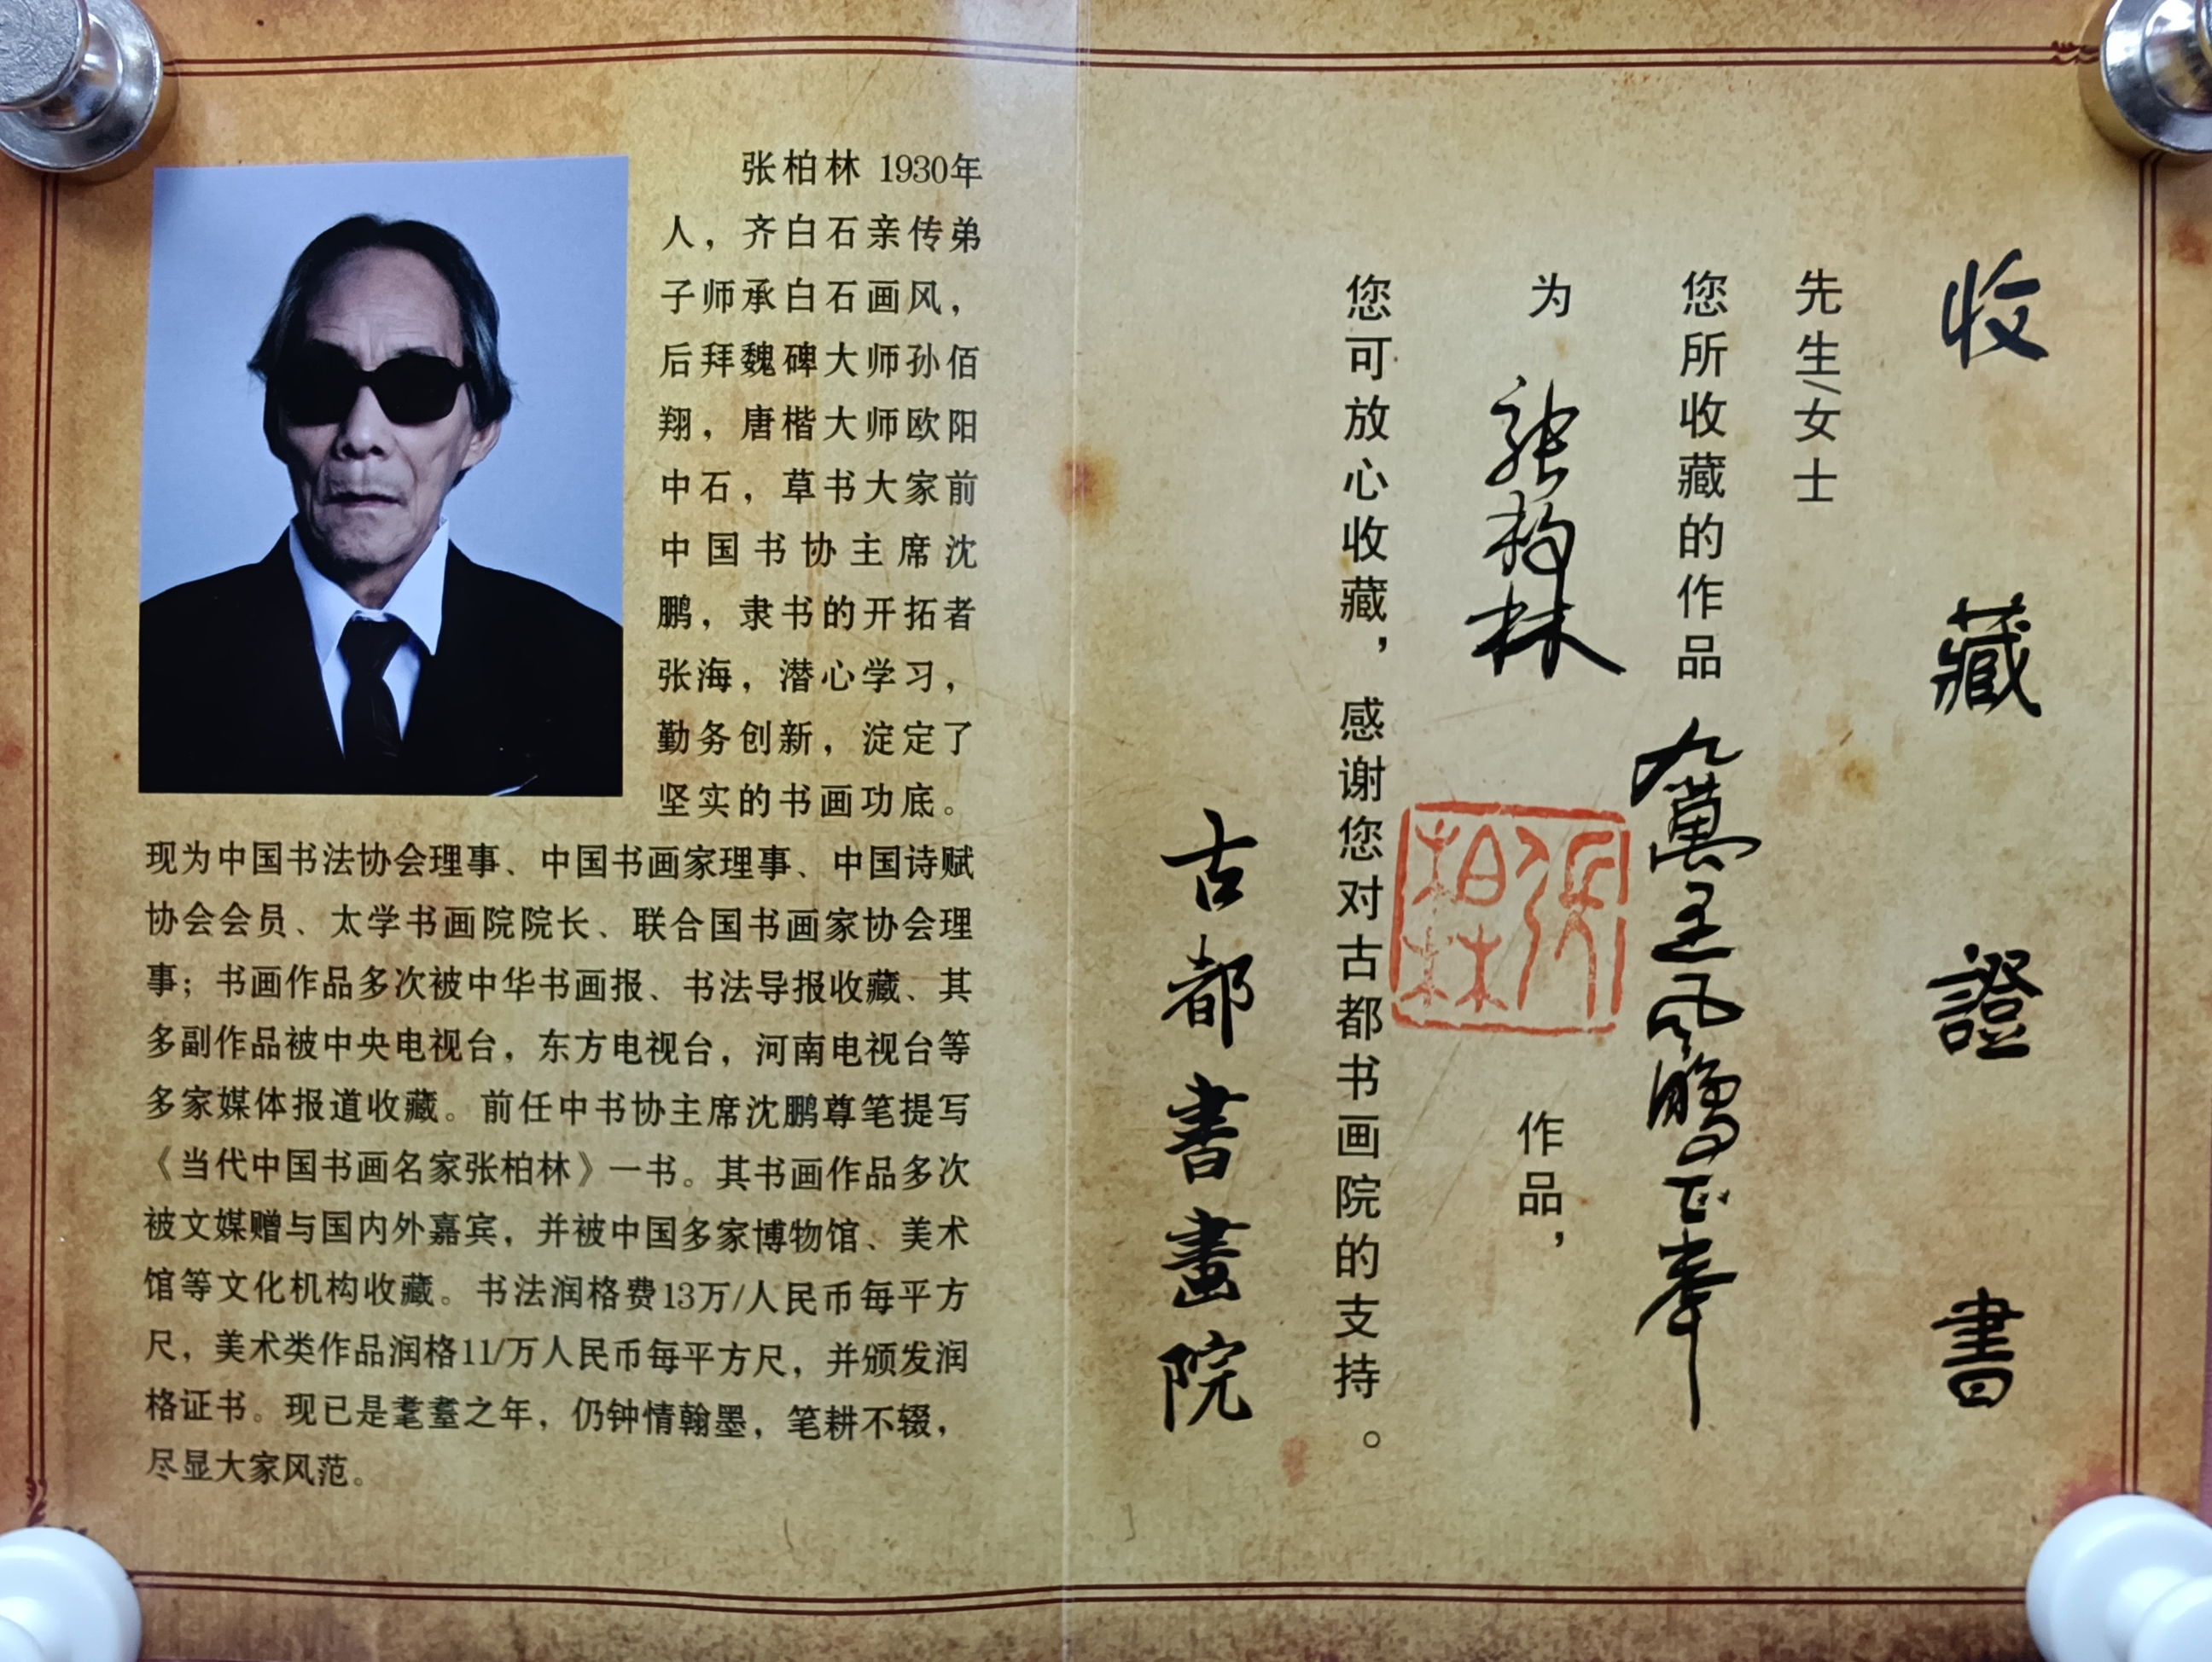 张柏林 1930年
人，齐白石亲传弟
子师承白石画风，
后拜魏碑大师孙佰
翔，唐楷大师欧阳
中石，草书大家前
中国书协主席沈
鹏，隶书的开拓者
张海，潜心学习，
勤务创新，淀定了
坚实的书画功底。
现为中国书法协会理事、中国书画家理事、中国诗赋
协会会员、太学书画院院长、联合国书画家协会理
事；书画作品多次被中华书画报、书法导报收藏、其
多副作品被中央电视台，东方电视台，河南电视台等
多家媒体报道收藏。前任中书协主席沈鹏尊笔提写
《当代中国书画名家张柏林》一书。其书画作品多次
被文媒赠与国内外嘉宾，并被中国多家博物馆、美术
馆等文化机构收藏。书法润格费13万/人民币每平方
尺，美术类作品润格11/万人民币每平方尺，并颁发润
格证书。现已是耄耋之年，仍钟情翰墨，笔耕不辍，
尽显大家风范。
收藏證書
先生/女士
您所收藏的作品 九萬里风鹏正举
为 张柏林 作品，
张柏林
您可放心收藏，感谢您对古都书画院的支持。
古都書畫院